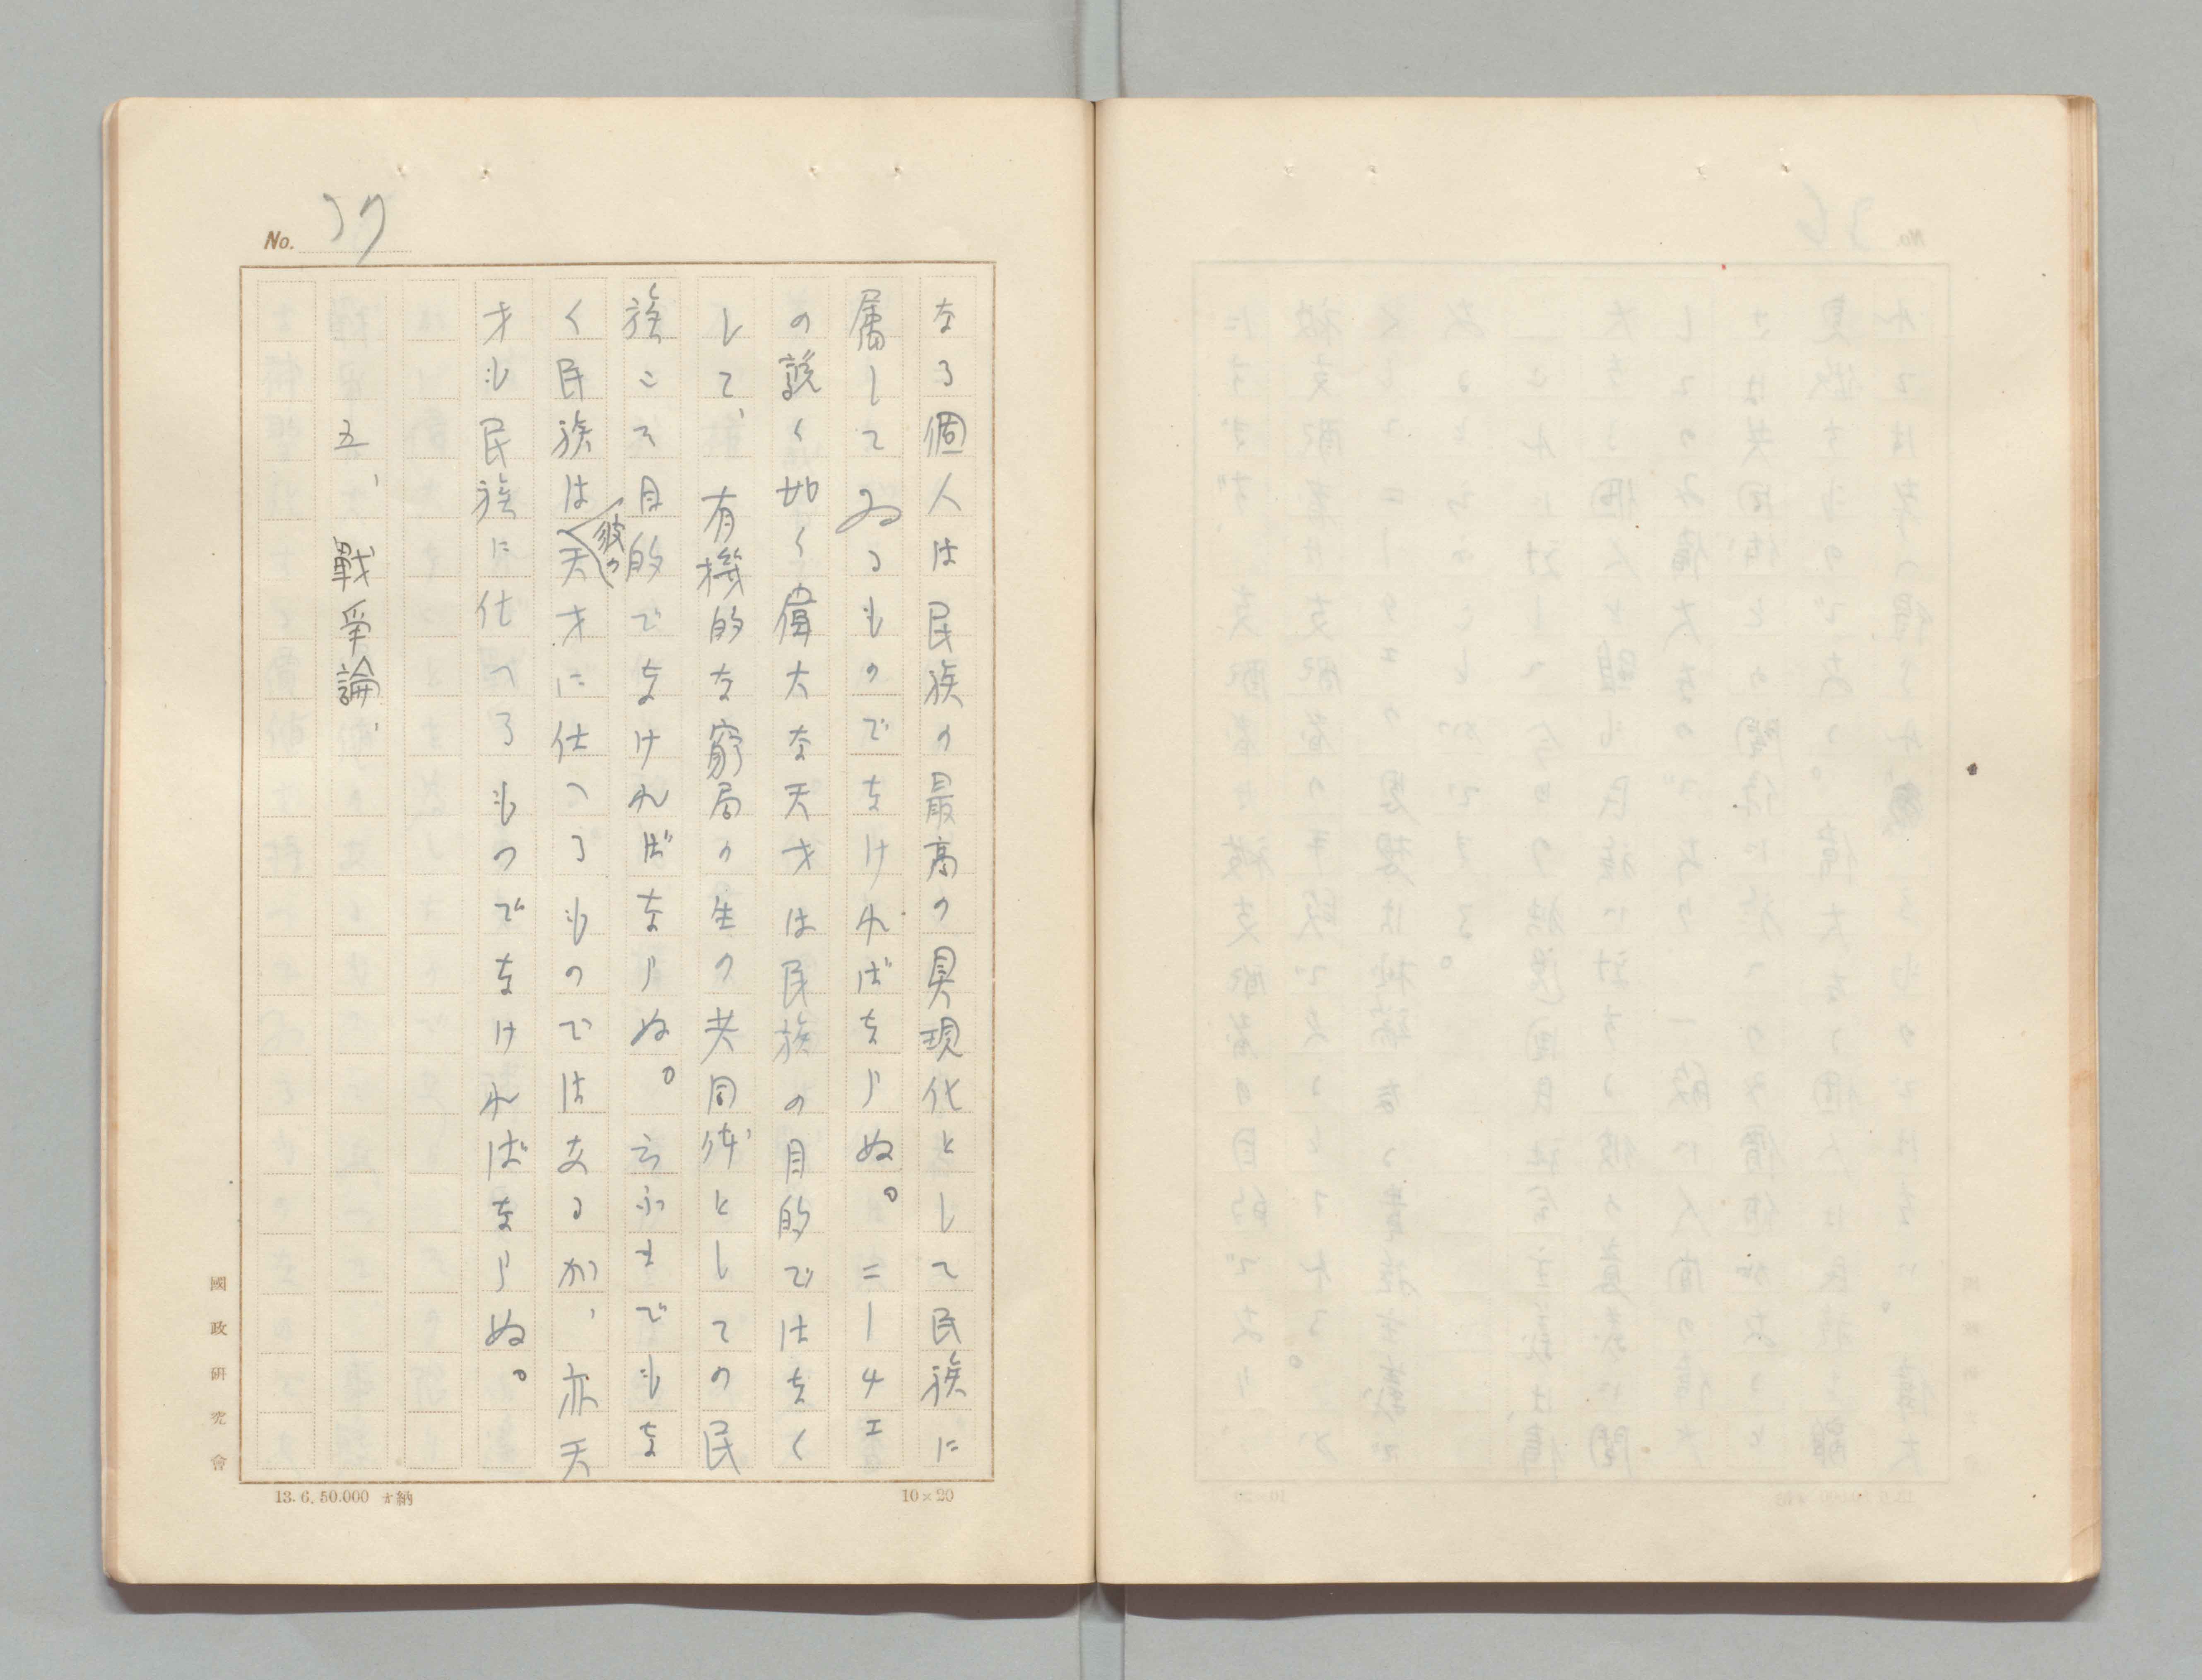 No. 37
なる個人は民族の最高の具現化として民族に
属してゐるものでなければならぬ。ニーチエ
の説く如く偉大な天才は民族の目的ではなく
して、有機的な窮局の生の共同体としての民
族こそ目的でなければならぬ。云ふまでもな
く民族は彼の天才に仕へるものではあるが、亦天
才も民族に仕へるものでなければならぬ。
五、戰爭論、
國政研究會
13.6.50.000 才納
10×20